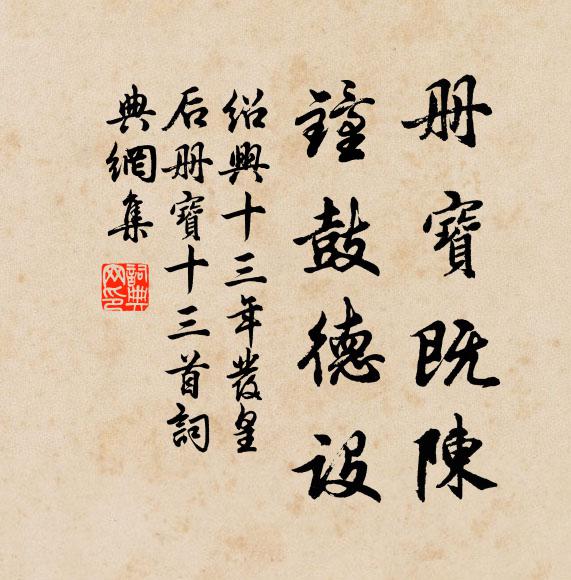 册寶既陳
鐘鼓德設
紹興十三年發皇
后册寶十三首詞
典網集
詞典
网印